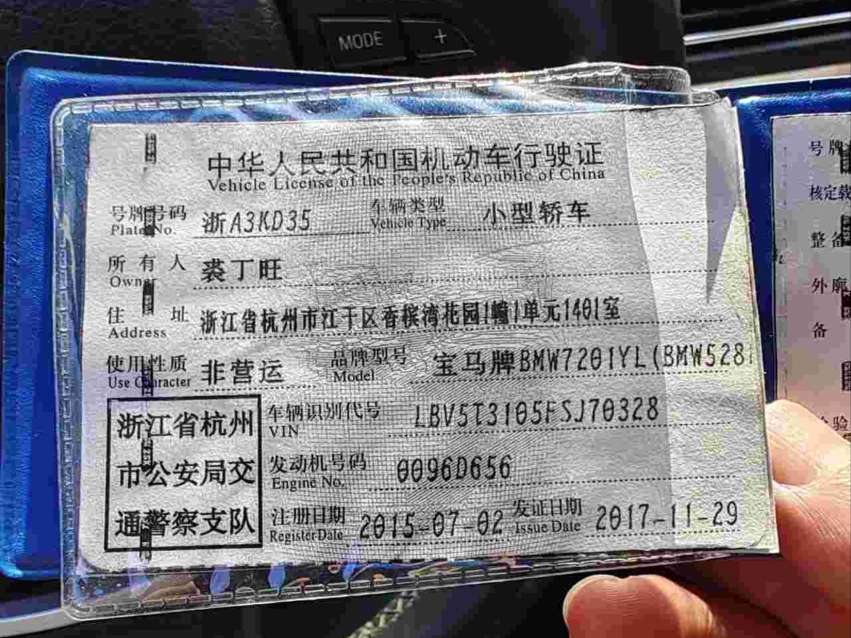 MODE
+
中华人民共和国机动车行驶证
Vehicle License of the People's Republic of China
号牌号码 浙A3KD35 车辆类型 小型轿车
Plate No. Vehicle Type
所有人 裘丁旺
Owner
住址 浙江省杭州市江干区香槟湾花园1幢1单元1401室
Address
使用性质 非营运 品牌型号 宝马牌BMW7201YL(BMW528
Use Character Model
浙江省杭州
市公安局交
通警察支队
车辆识别代号 LBV5T3105FSJ70328
VIN
发动机号码 0096D656
Engine No.
注册日期 2015-07-02 发证日期 2017-11-29
Register Date Issue Date
号牌
核定载
整备
外廓
备
检验